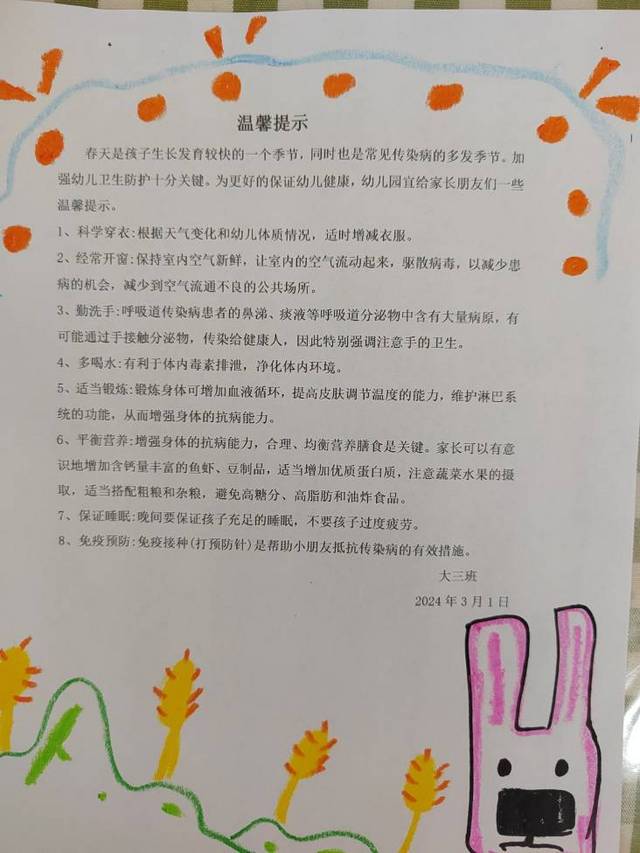 温馨提示
春天是孩子生长发育较快的一个季节，同时也是常见传染病的多发季节。加
强幼儿卫生防护十分关键。为更好的保证幼儿健康，幼儿园宣给家长朋友们一些
温馨提示。
1、科学穿衣:根据天气变化和幼儿体质情况，适时增减衣服。
2、经常开窗:保持室内空气新鲜，让室内的空气流动起来，驱散病毒，以减少患
病的机会，减少到空气流通不良的公共场所。
3、勤洗手:呼吸道传染病患者的鼻涕、痰液等呼吸道分泌物中含有大量病原，有
可能通过手接触分泌物，传染给健康人，因此特别强调注意手的卫生。
4、多喝水:有利于体内毒素排泄，净化体内环境。
5、适当锻炼:锻炼身体可增加血液循环，提高皮肤调节温度的能力，维护淋巴系
统的功能，从而增强身体的抗病能力。
6、平衡营养:增强身体的抗病能力，合理、均衡营养膳食是关键。家长可以有意
识地增加含钙量丰富的鱼虾、豆制品，适当增加优质蛋白质，注意蔬菜水果的摄
取，适当搭配粗粮和杂粮，避免高糖分、高脂肪和油炸食品。
7、保证睡眠:晚间要保证孩子充足的睡眠，不要孩子过度疲劳。
8、免疫预防:免疫接种(打预防针)是帮助小朋友抵抗传染病的有效措施。
大三班
2024 年 3 月 1 日